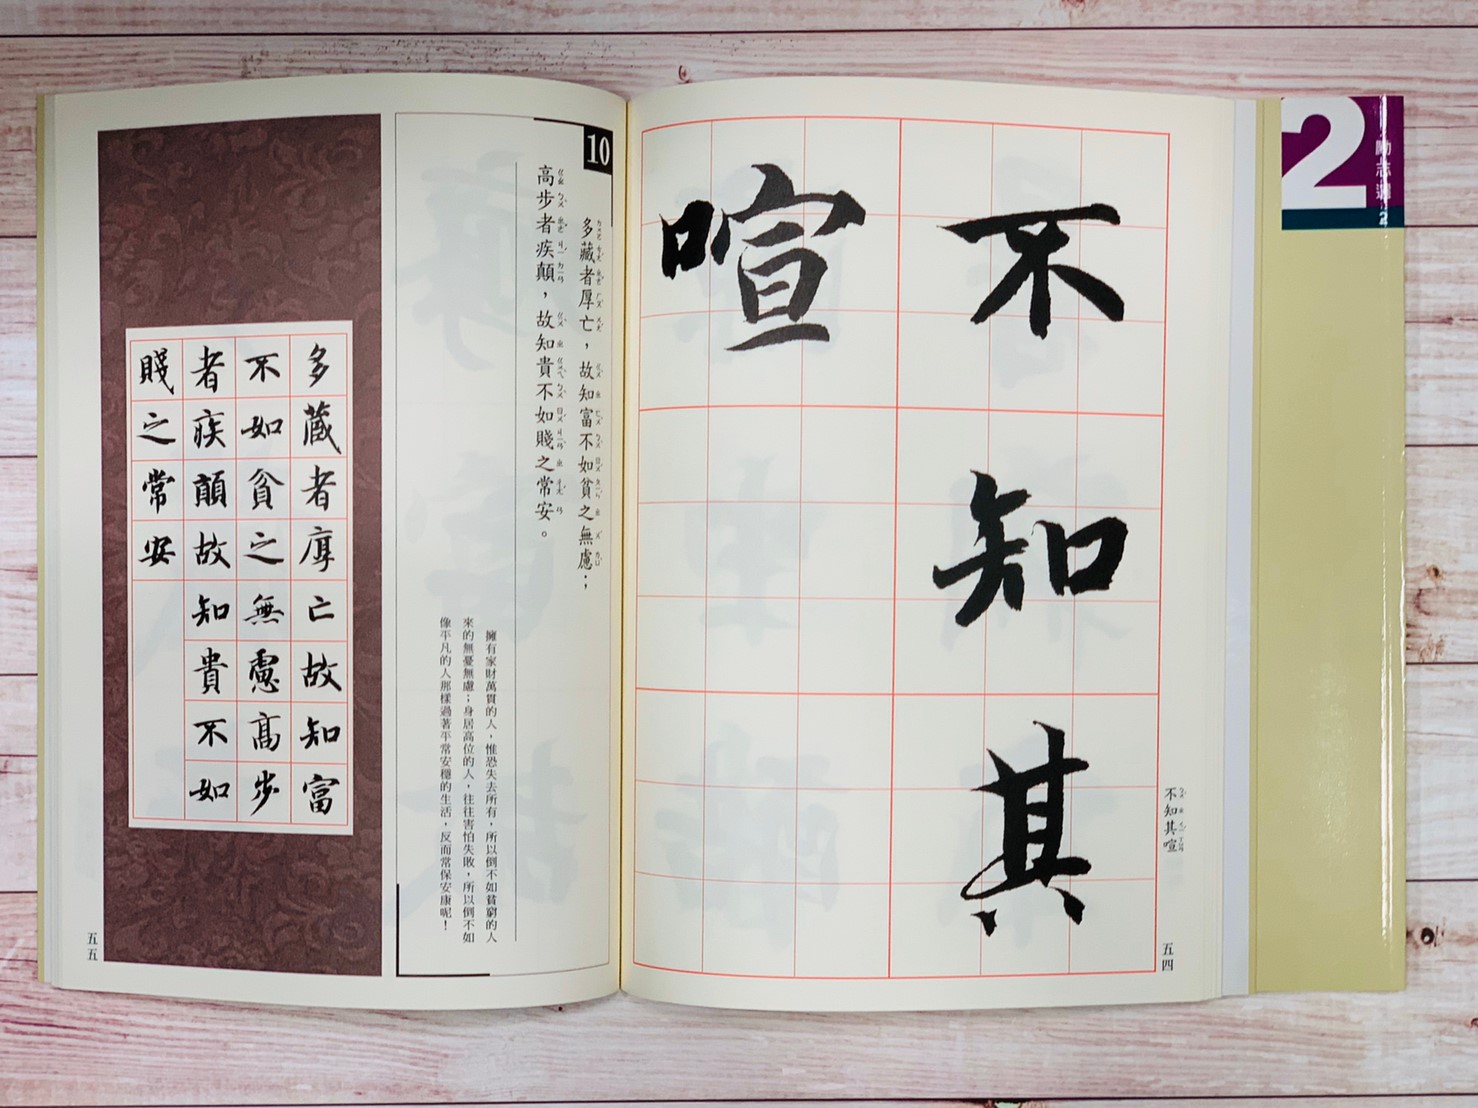 2
勵志選 2
不知其
喧
不知其喧
五四
10
多藏者厚亡，故知富不如貧之無慮；
高步者疾顛，故知貴不如賤之常安。
擁有家財萬貫的人，惟恐失去所有，所以倒不如貧窮的人
來的無憂無慮；身居高位的人，往往害怕失敗，所以倒不如
像平凡的人那樣過著平常安穩的生活，反而常保安康呢！
多藏者厚亡故知富
不如貧之無慮高步
者疾顛故知貴不如
賤之常安
五五